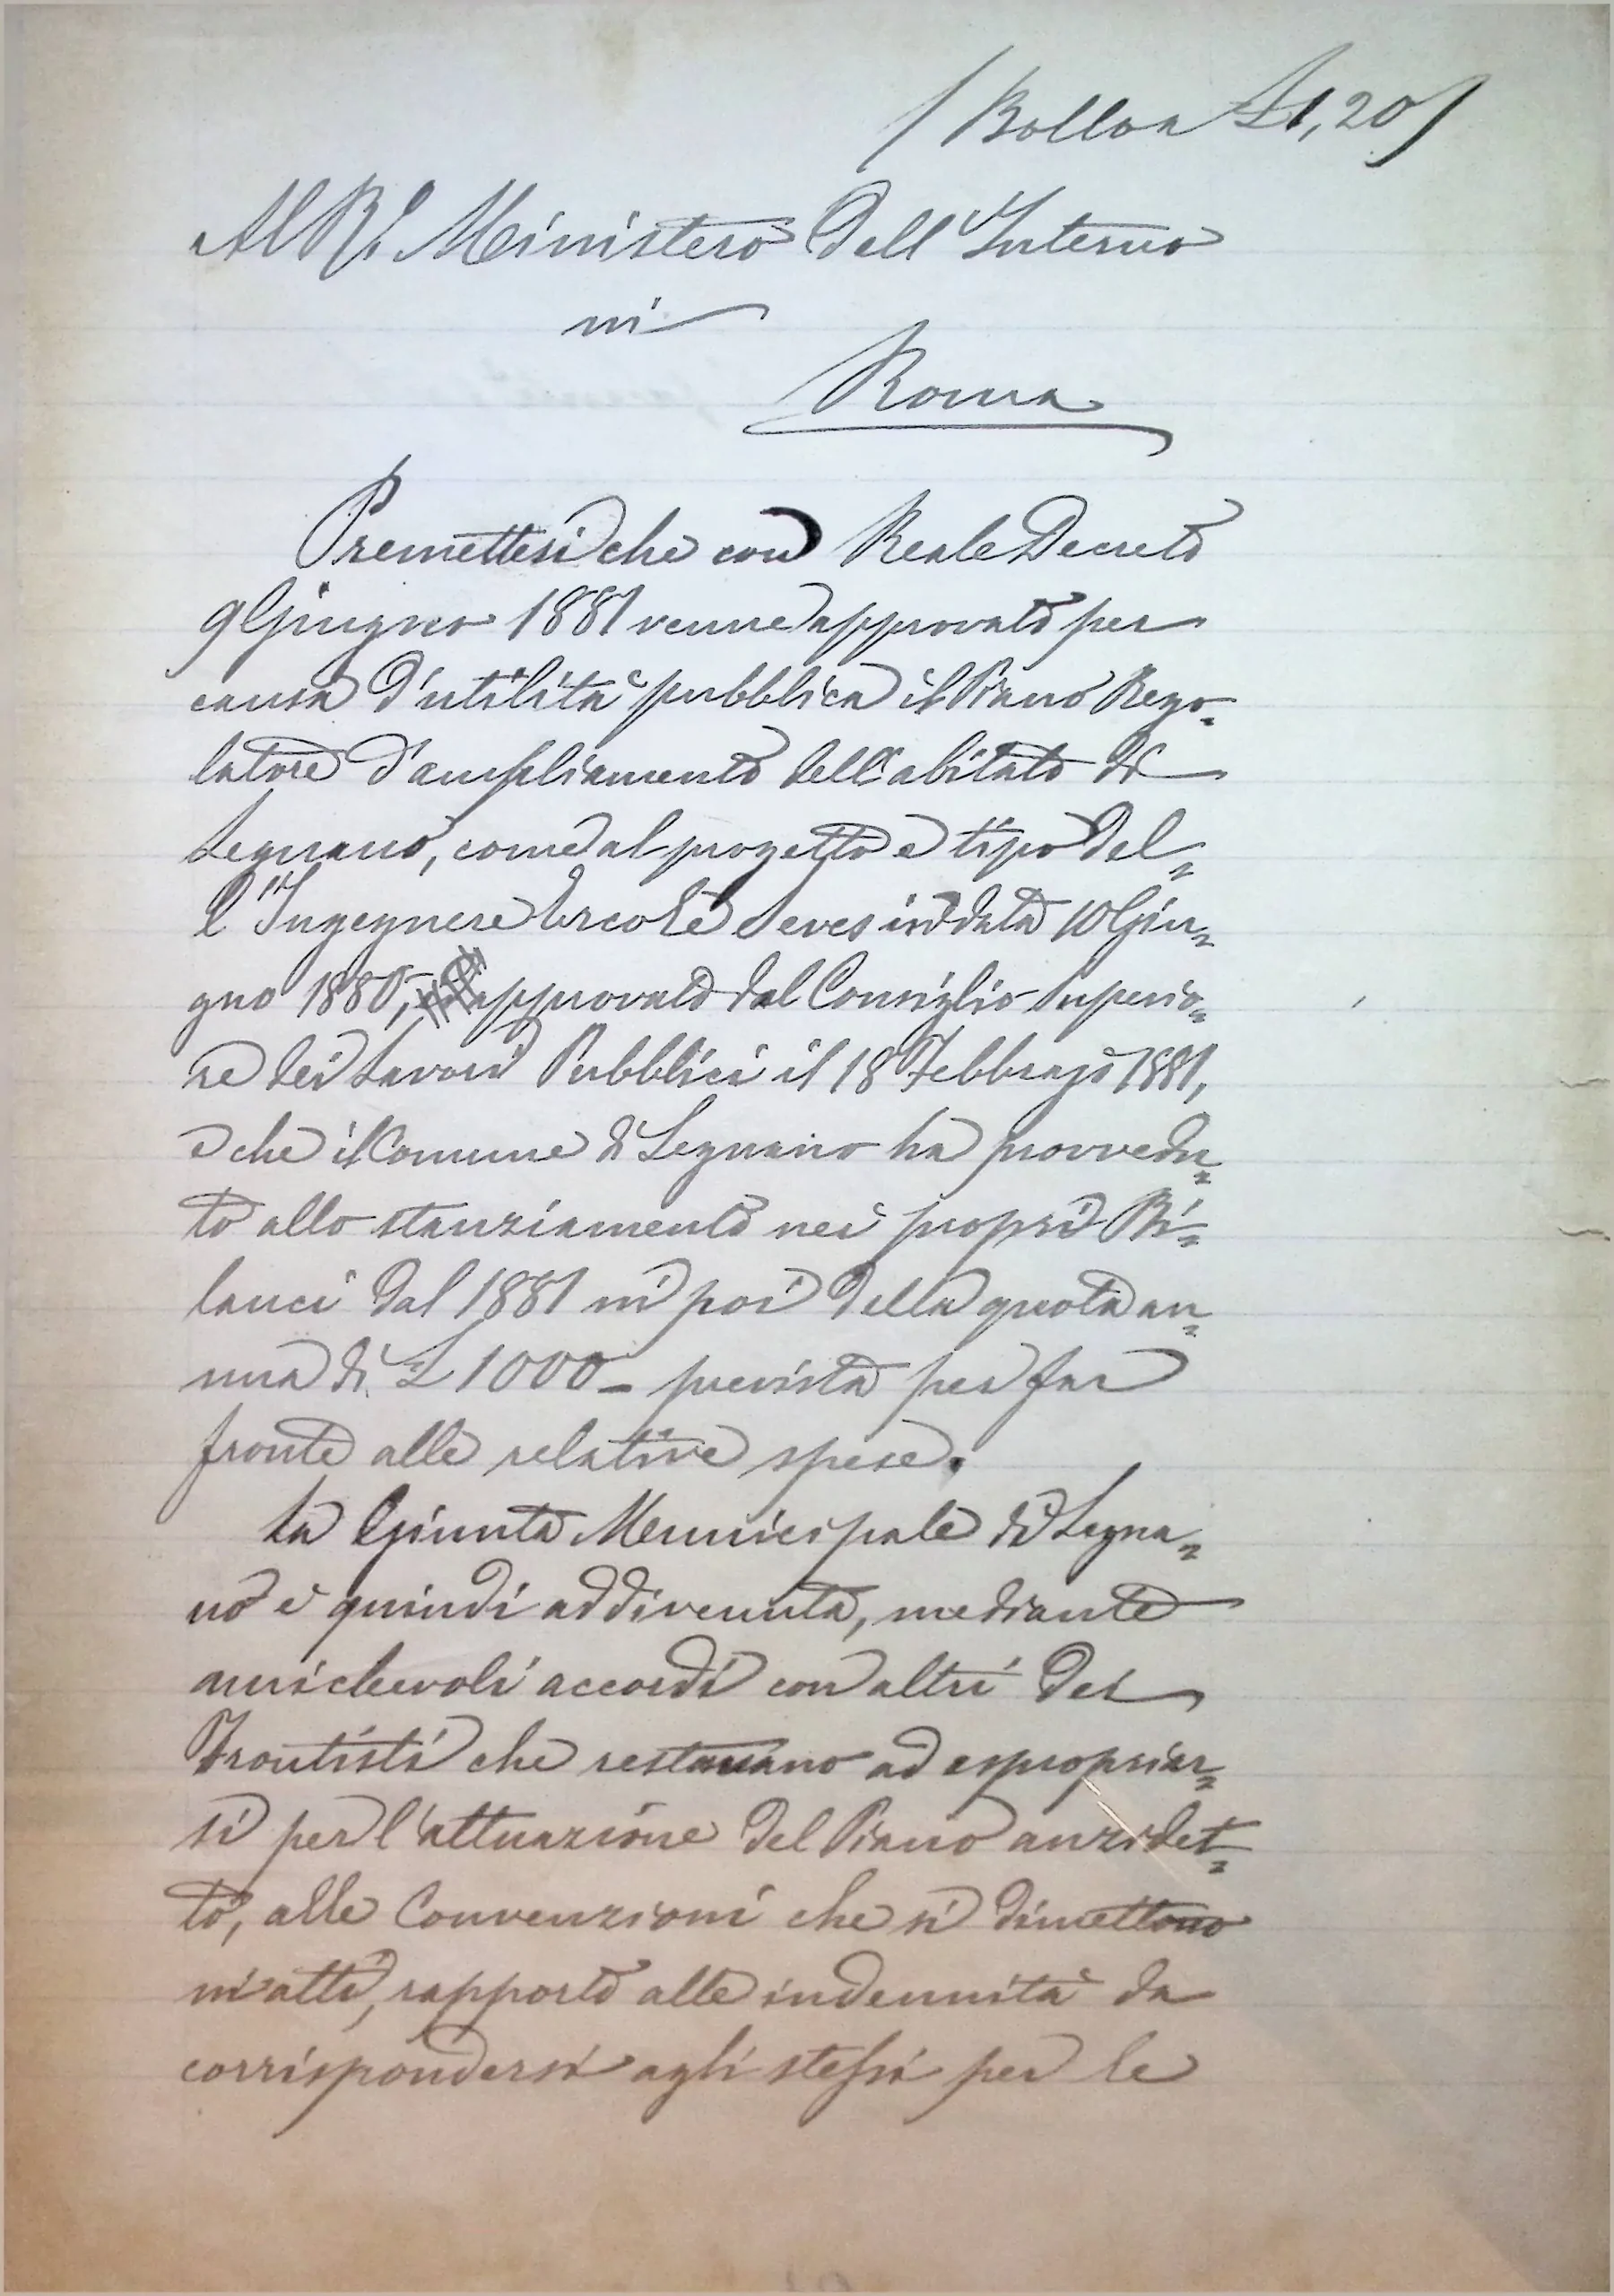 ( Bollo a £ 1,20 )
Al R.º Ministero dell'Interno
in
Roma
Premettesi che con Reale Decreto
9 Giugno 1881 venne approvato per
causa d'utilità pubblica il Piano Rego=
latore d'ampliamento dell'abitato di
Legnano, come al progetto e tipo del=
l'Ingegnere Ercole Seves in data 10 Giu=
gno 1880, approvato dal Consiglio Superio=
re dei Lavori Pubblici il 18 Febbrajo 1881,
e che il Comune di Legnano ha provvedu=
to allo stanziamento nei proprii Bi=
lanci dal 1881 in poi della quota an=
nua di £ 1000 - prevista per far
fronte alle relative spese.
La Giunta Municipale di Legna=
no è quindi addivenuta, mediante
amichevoli accordi con altri dei
Frontisti che restavano ad espropriar=
si per l'attuazione del Piano anzidet=
to, alle Convenzioni che si dimettono
in atti, rapporto alle indennità da
corrispondersi agli stessi per le